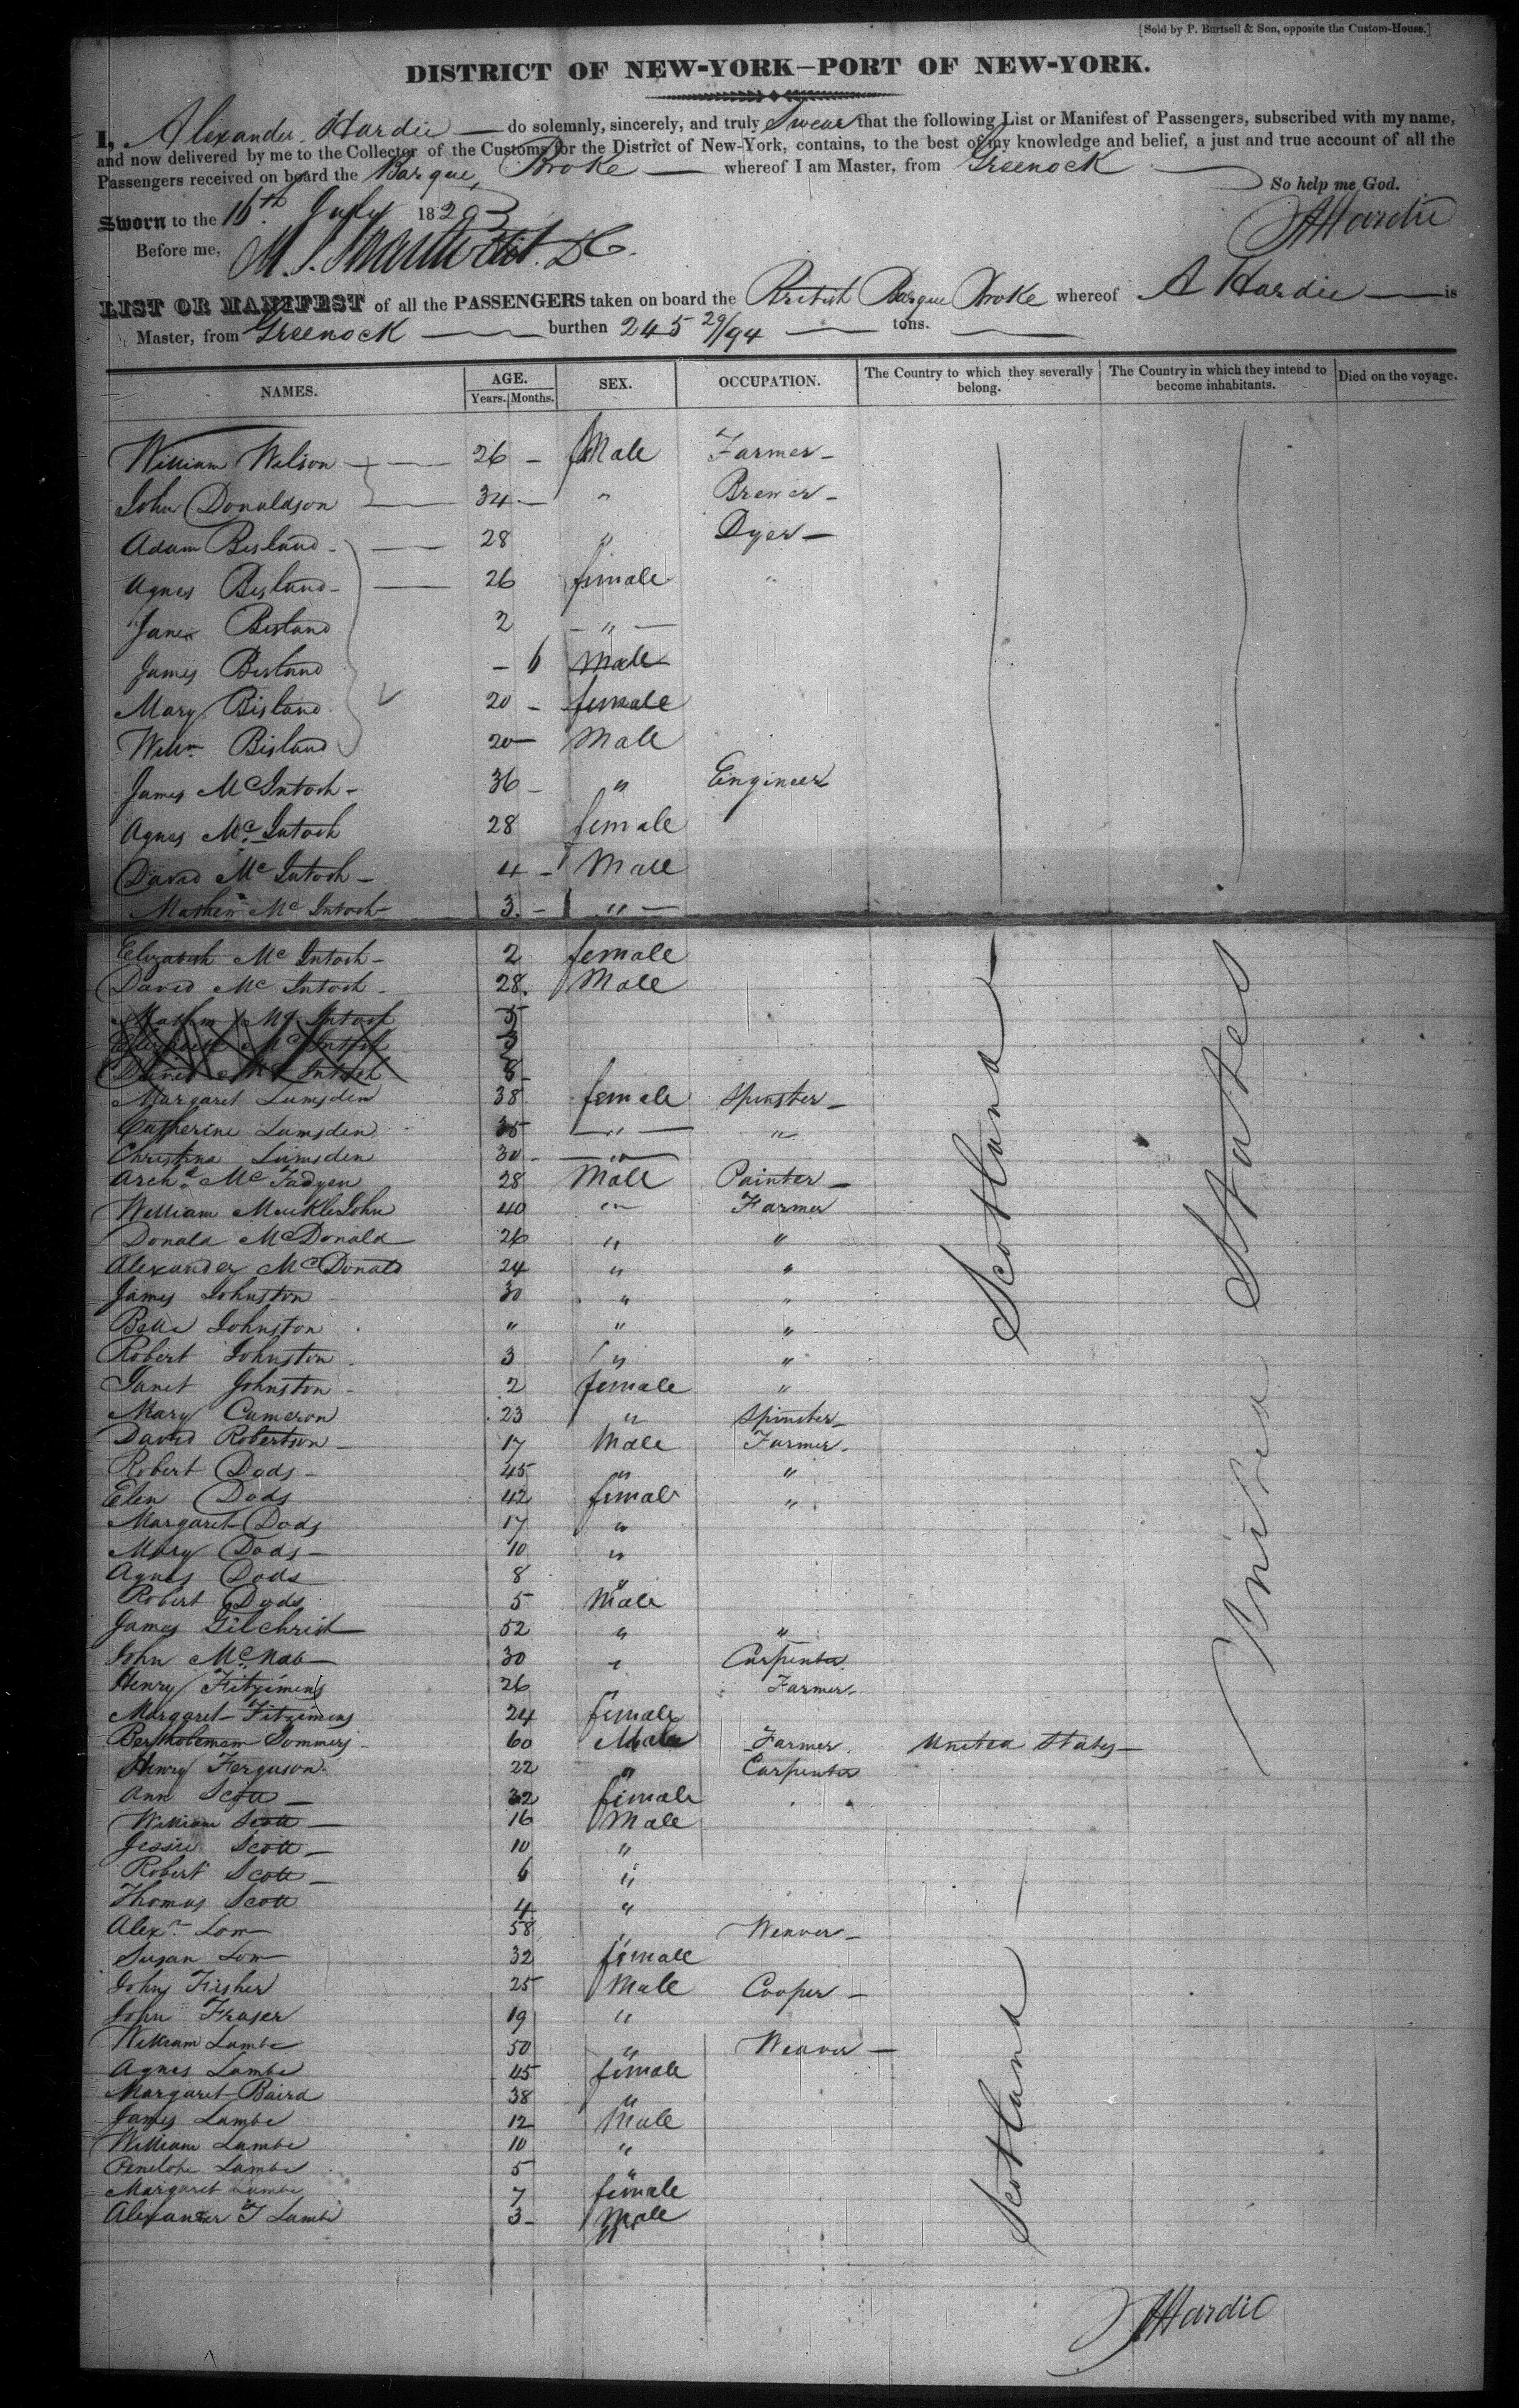 [Sold by P. Burtsell & Son, opposite the Custom-House.]
DISTRICT OF NEW-YORK—PORT OF NEW-YORK.
I, Alexander Hardie — do solemnly, sincerely, and truly Swear that the following List or Manifest of Passengers, subscribed with my name,
and now delivered by me to the Collector of the Customs for the District of New-York, contains, to the best of my knowledge and belief, a just and true account of all the
Passengers received on board the Barque Broke — whereof I am Master, from Greenock —
So help me God.
Sworn to the 16th July 1829
AHardie
Before me,
LIST OR MANIFEST of all the PASSENGERS taken on board the British Barque Broke whereof A Hardie — is
Master, from Greenock — burthen 245 29/94 — tons. —
NAMES. AGE. Years. Months. SEX. OCCUPATION. The Country to which they severally belong. The Country in which they intend to become inhabitants. Died on the voyage.
William Wilson — 26 - Male Farmer -
John Donaldson — 34 - " Brewer -
Adam Bisland - — 28 " Dyer -
Agnes Bisland - — 26 female "
Jane Bisland 2 "
James Bisland - 6 Male
Mary Bisland 20 - female
Willm Bisland 20 - Male
James McIntosh - 36 - " Engineer
Agnes McIntosh 28 female
David McIntosh - 4 - Male
Mathew McIntosh - 3 - "
Elizabeth McIntosh - 2 female
David McIntosh - 28 Male
Mathew McIntosh 5
Elizabeth McIntosh 3
David McIntosh 8
Margaret Lumsden 38 female Spinster -
Catherine Lumsden 35 " "
Christina Lumsden 30 - "
Archd McFadyen 28 Male Painter -
William MuckleJohn 40 " Farmer
Donald McDonald 26 " "
Alexander McDonald 24 " "
James Johnston 30 " "
Bella Johnston " " "
Robert Johnston 3 " "
Janet Johnston - 2 female "
Mary Cameron 23 " Spinster -
David Robertson - 17 Male Farmer -
Robert Dods - 45 " "
Elen Dods 42 female "
Margaret Dods 17 "
Mary Dods - 10 "
Agnes Dods 8 "
Robert Dods 5 Male
James Gilchrist 52 " "
John McNab 30 " Carpenter
Henry Fitzimens 26 Farmer -
Margaret Fitzimens 24 female
Bartholemew Sommers - 60 Male Farmer United States -
Henry Ferguson 22 " Carpenter
Ann Scott - 32 female
William Scott - 16 Male
Jessie Scott - 10 "
Robert Scott - 6 "
Thomas Scott 4 "
Alexr Low 58 " Weaver -
Susan Low 32 female
John Fisher 25 Male Cooper -
John Fraser 19 "
William Lambe 50 " Weaver -
Agnes Lambe 45 female
Margaret Baird 38 "
James Lambe 12 Male
William Lambe 10 "
Penelope Lambe 5 "
Margaret Lambe 7 female
Alexander T Lambe 3 - Male
Scotland
United States
Scotland
AHardie